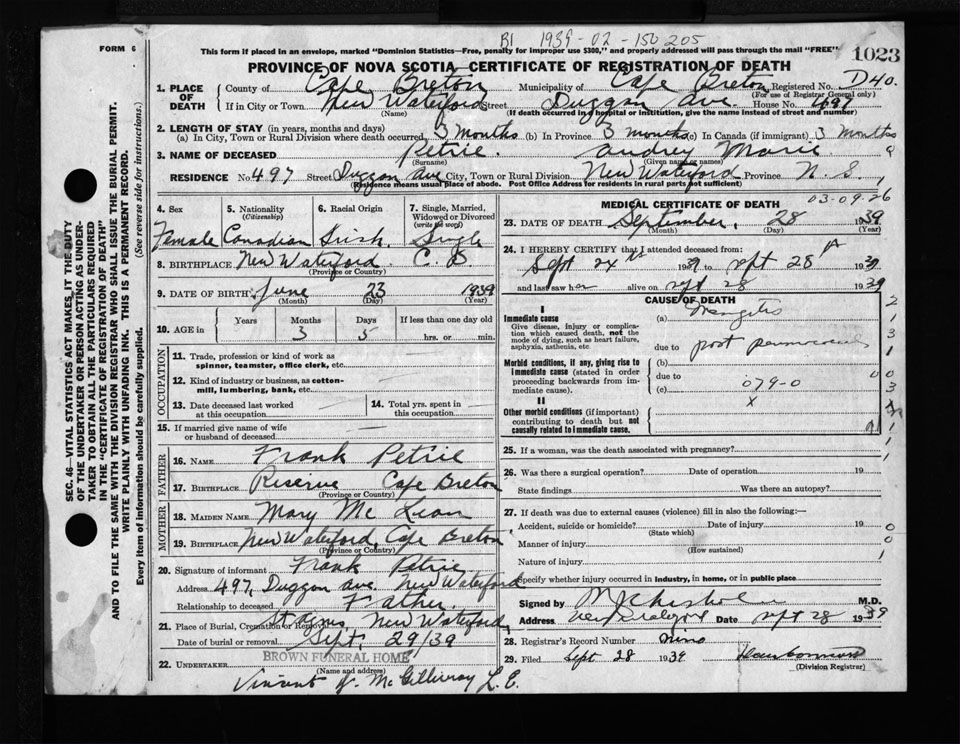 B1 1939-02-150205
FORM 6
This form if placed in an envelope, marked "Dominion Statistics—Free, penalty for improper use $300," and properly addressed will pass through the mail "FREE"
1023
PROVINCE OF NOVA SCOTIA—CERTIFICATE OF REGISTRATION OF DEATH
1. PLACE OF DEATH
County of Cape Breton Municipality of Cape Breton Registered No. D40.
(For use of Registrar General only)
If in City or Town New Waterford Street Duggan Ave. House No. 497
(Name) (If death occurred in a hospital or institution, give the name instead of street and number)
2. LENGTH OF STAY (in years, months and days)
(a) In City, Town or Rural Division where death occurred, 3 months (b) In Province 3 months (c) In Canada (if immigrant) 3 months
3. NAME OF DECEASED Petrie. Audrey Marie
(Surname) (Given name or names)
RESIDENCE No. 497 Street Duggan Ave City, Town or Rural Division New Waterford Province N. S.
(Residence means usual place of abode. Post Office Address for residents in rural parts not sufficient)
SEC. 46—VITAL STATISTICS ACT MAKES IT THE DUTY
OF THE UNDERTAKER OR PERSON ACTING AS UNDER-
TAKER TO OBTAIN ALL THE PARTICULARS REQUIRED
IN THE "CERTIFICATE OF REGISTRATION OF DEATH"
AND TO FILE THE SAME WITH THE DIVISION REGISTRAR WHO SHALL ISSUE THE BURIAL PERMIT.
WRITE PLAINLY WITH UNFADING INK. THIS IS A PERMANENT RECORD.
Every item of information should be carefully supplied. (See reverse side for instructions.)
4. Sex 5. Nationality (Citizenship) 6. Racial Origin 7. Single, Married, Widowed or Divorced (write the word)
Female Canadian Irish Single
8. BIRTHPLACE New Waterford. C. B.
(Province or Country)
9. DATE OF BIRTH June 23 1939
(Month) (Day) (Year)
10. AGE in Years Months Days If less than one day old
3 5 hrs. or min.
OCCUPATION
11. Trade, profession or kind of work as spinner, teamster, office clerk, etc.
12. Kind of industry or business, as cotton-mill, lumbering, bank, etc.
13. Date deceased last worked at this occupation
14. Total yrs. spent in this occupation
15. If married give name of wife or husband of deceased
FATHER
16. NAME Frank Petrie
17. BIRTHPLACE Reserve Cape Breton
(Province or Country)
MOTHER
18. MAIDEN NAME Mary Mc Lean
19. BIRTHPLACE New Waterford, Cape Breton
(Province or Country)
20. Signature of informant Frank Petrie
Address 497, Duggan Ave. New Waterford
Relationship to deceased Father.
21. Place of Burial, Cremation or Removal St Agnes New Waterford
Date of burial or removal Sept. 29/39
BROWN FUNERAL HOME
22. UNDERTAKER
(Name and address)
Vincent J. McGillivray L. E.
MEDICAL CERTIFICATE OF DEATH 03-09-26
23. DATE OF DEATH September, 28 1939
(Month) (Day) (Year)
24. I HEREBY CERTIFY that I attended deceased from:
Sept 24th 1939 to Sept 28th 1939
and last saw her alive on Sept 28 1939
CAUSE OF DEATH
I
Immediate cause (a)
Give disease, injury or complication which caused death, not the mode of dying, such as heart failure, asphyxia, asthenia, etc.
due to post
Morbid conditions, if any, giving rise to immediate cause (stated in order proceeding backwards from immediate cause).
(b)
due to
(c) 079-0
X
II
Other morbid conditions (if important) contributing to death but not causally related to immediate cause.
25. If a woman, was the death associated with pregnancy?
26. Was there a surgical operation? Date of operation 19
State findings Was there an autopsy?
27. If death was due to external causes (violence) fill in also the following:—
Accident, suicide or homicide? Date of injury 19
(State which)
Manner of injury
(How sustained)
Nature of injury
Specify whether injury occurred in industry, in home, or in public place
Signed by M.D.
Address Date Sept 28 1939
28. Registrar's Record Number
29. Filed Sept 28 1939
(Division Registrar)